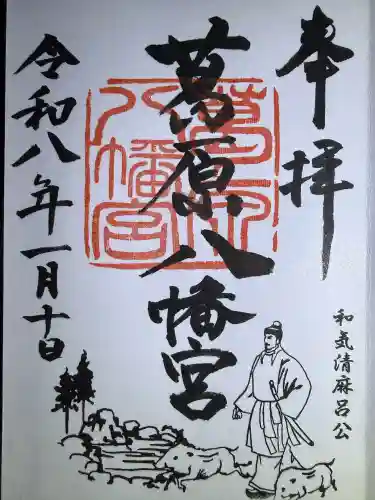 奉拝
葛原八幡宮
葛原八幡宮
令和八年一月十日
和気清麻呂公